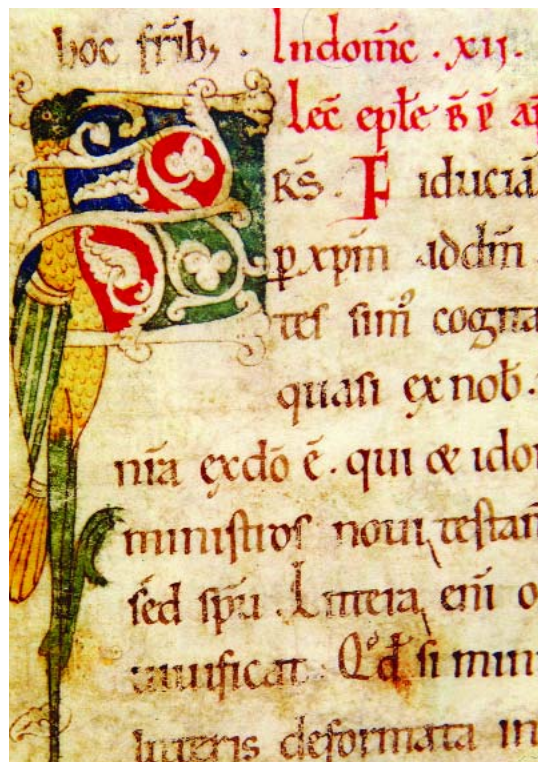 hoc fr̄ib; . Indom̄c . xij .
Lec̄ ep̄łe B̄ P̄ ap
RS̄ . Fiducia
p̱ xp̄m ad dm̄
tes sim᷒ cogita
quasi ex nob̄ .
nr̄a ex dō ē . qui & ido
ministros noui testam̄
sed spū . Littera eni̅ o
uiuificat . Qd̄ si min
litteris deformata in